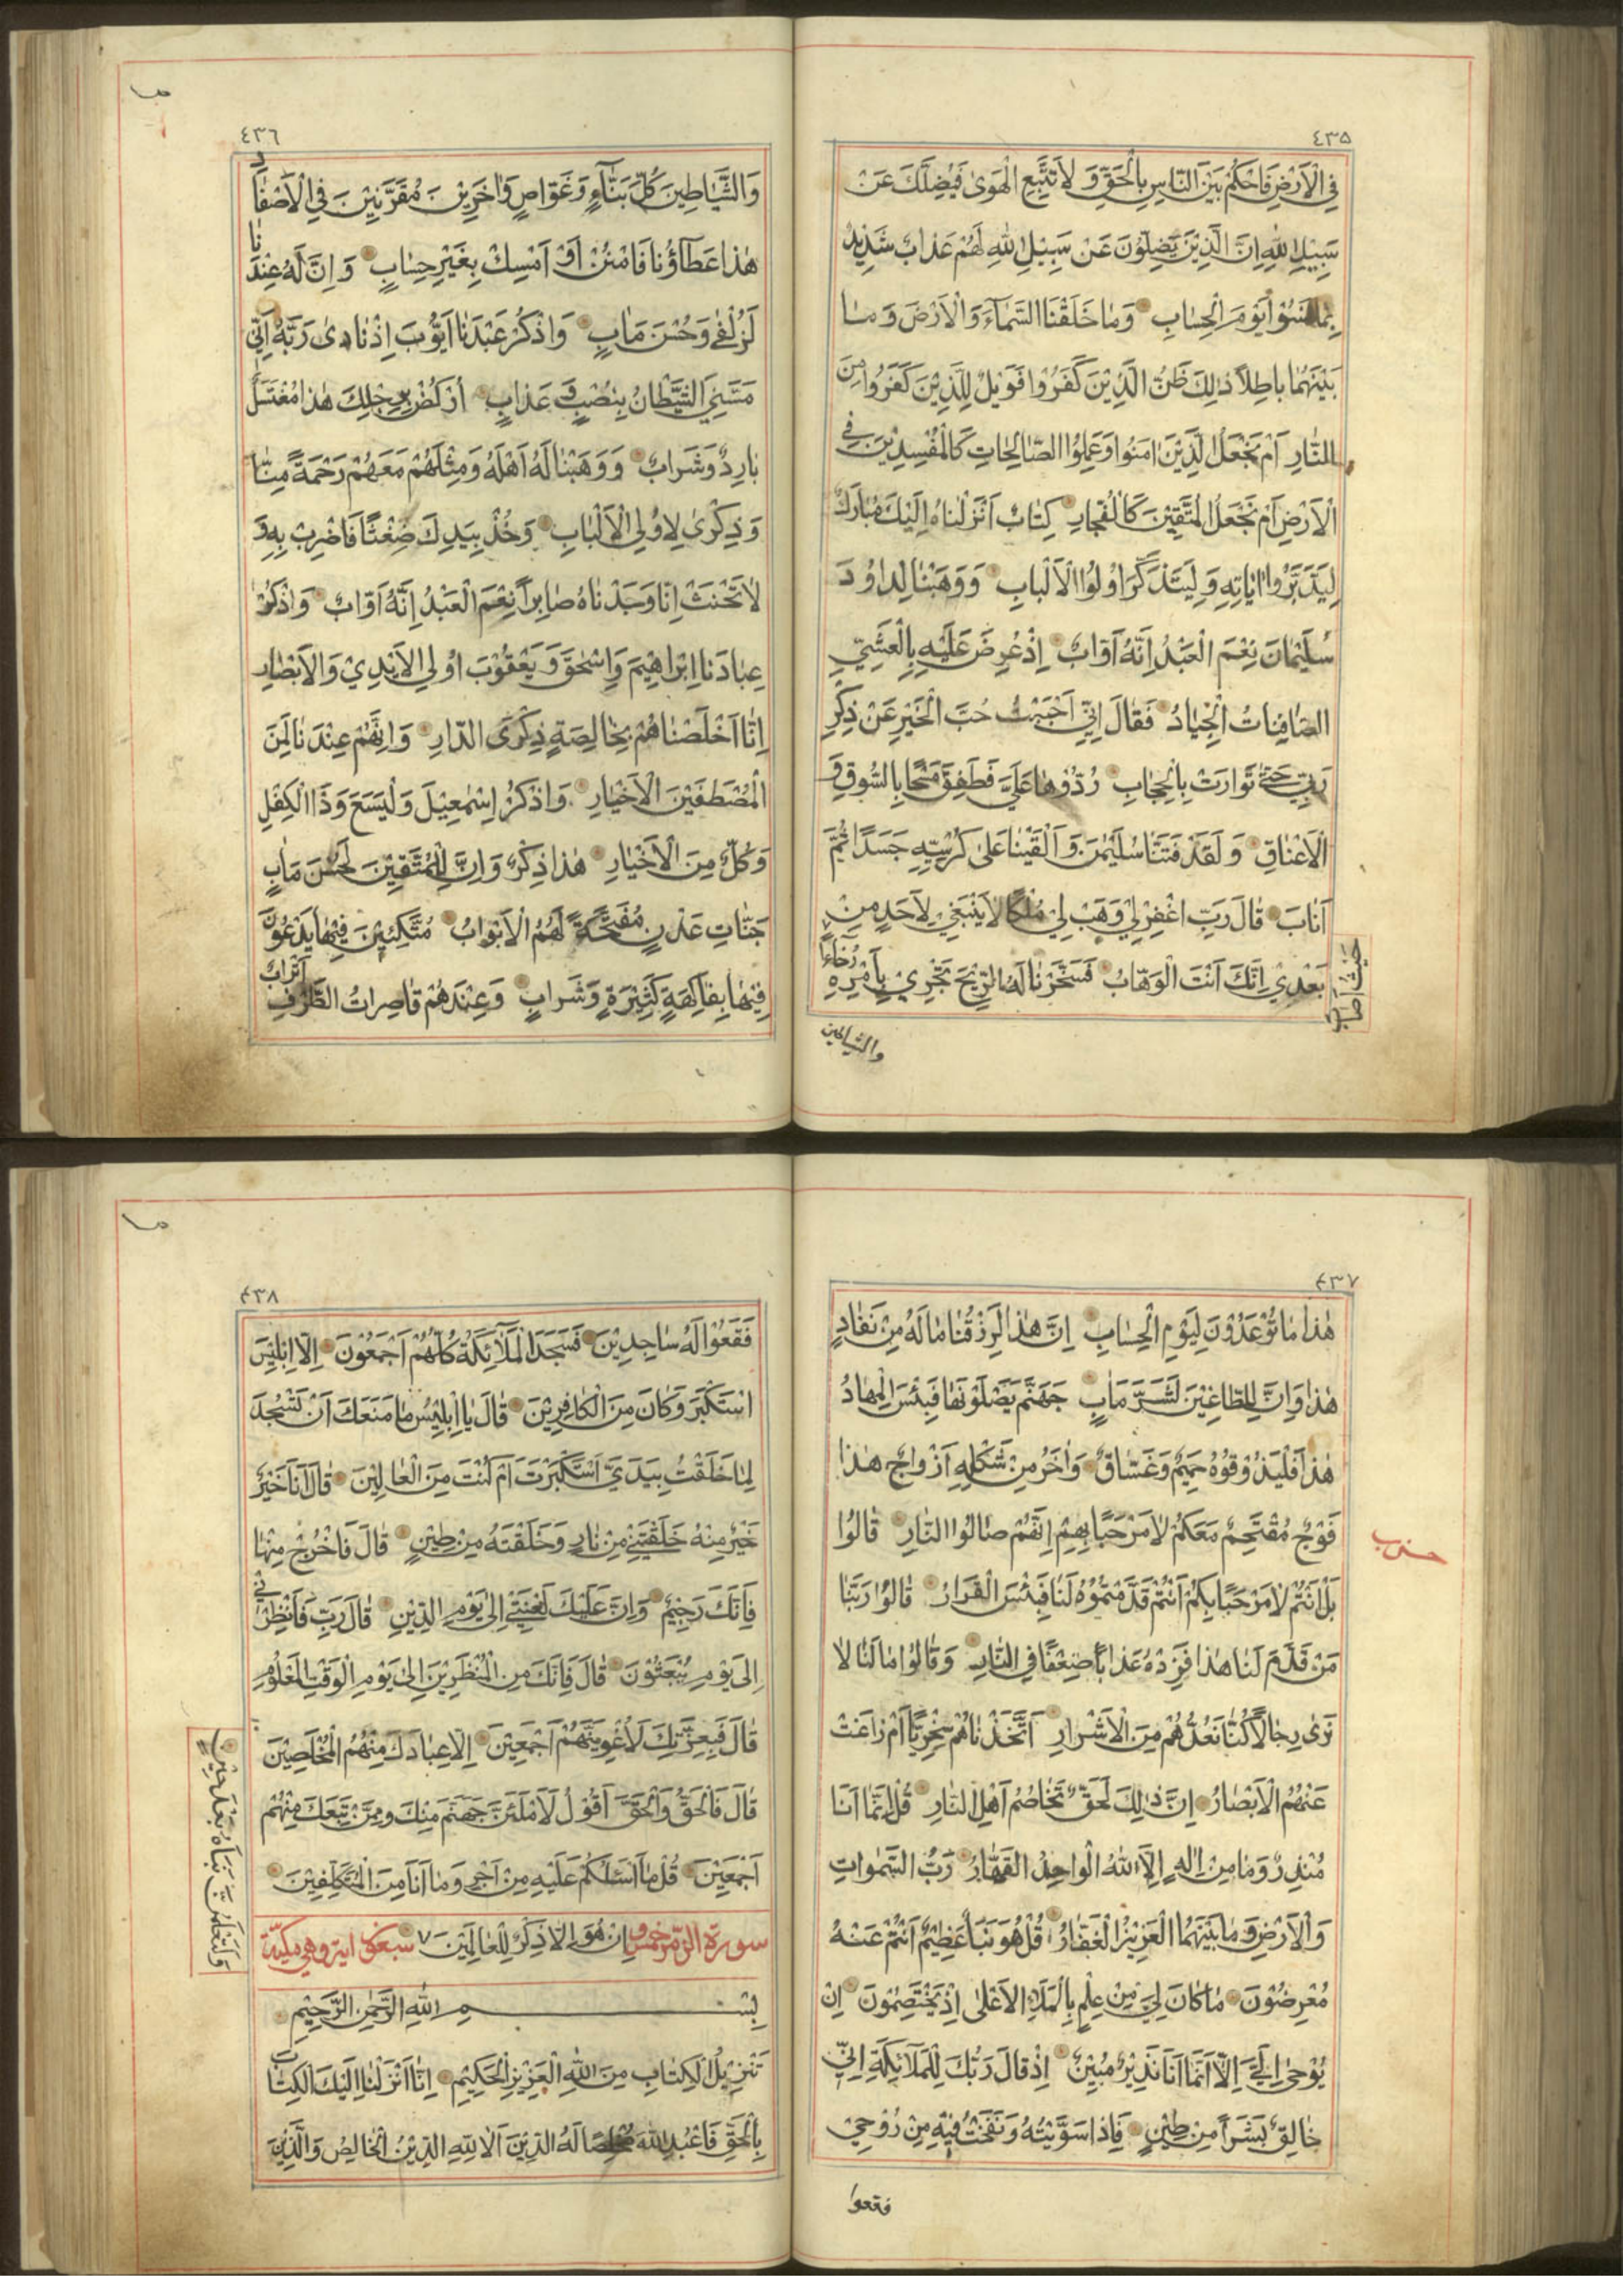 ٤٣٥
فِي الْاَرْضِ فَاحْكُمْ بَيْنَ النَّاسِ بِالْحَقِّ وَ لَا تَتَّبِعِ الْهَوٰى فَيُضِلَّكَ عَنْ
سَبِيْلِ اللّٰهِ اِنَّ الَّذِيْنَ يَضِلُّوْنَ عَنْ سَبِيْلِ اللّٰهِ لَهُمْ عَذَابٌ شَدِيْدٌ
بِمَا نَسُوْا يَوْمَ الْحِسَابِ وَمَا خَلَقْنَا السَّمَآءَ وَالْاَرْضَ وَ مَا
بَيْنَهُمَا بَاطِلًا ذٰلِكَ ظَنُّ الَّذِيْنَ كَفَرُوْا فَوَيْلٌ لِلَّذِيْنَ كَفَرُوْا مِنَ
النَّارِ اَمْ نَجْعَلُ الَّذِيْنَ اٰمَنُوا وَعَمِلُوا الصَّالِحَاتِ كَالْمُفْسِدِيْنَ فِي
الْاَرْضِ اَمْ نَجْعَلُ الْمُتَّقِيْنَ كَالْفُجَّارِ كِتَابٌ اَنْزَلْنَاهُ اِلَيْكَ مُبَارَكٌ
لِيَدَّبَّرُوْا اٰيَاتِهِ وَ لِيَتَذَكَّرَ اُولُوا الْاَلْبَابِ وَ وَهَبْنَا لِدَاوُدَ
سُلَيْمَانَ نِعْمَ الْعَبْدُ اِنَّهُ اَوَّابٌ اِذْ عُرِضَ عَلَيْهِ بِالْعَشِيِّ
الصَّافِنَاتُ الْجِيَادُ فَقَالَ اِنِّيْ اَحْبَبْتُ حُبَّ الْخَيْرِ عَنْ ذِكْرِ
رَبِّيْ حَتّٰى تَوَارَتْ بِالْحِجَابِ رُدُّوْهَا عَلَيَّ فَطَفِقَ مَسْحًا بِالسُّوقِ وَ
الْاَعْنَاقِ وَ لَقَدْ فَتَنَّا سُلَيْمٰنَ وَ اَلْقَيْنَا عَلٰى كُرْسِيِّهِ جَسَدًا ثُمَّ
اَنَابَ قَالَ رَبِّ اغْفِرْ لِيْ وَهَبْ لِيْ مُلْكًا لَا يَنْبَغِيْ لِاَحَدٍ مِنْ
بَعْدِيْ اِنَّكَ اَنْتَ الْوَهَّابُ فَسَخَّرْنَا لَهُ الرِّيْحَ تَجْرِيْ بِاَمْرِهِ رُخَآءً
حَيْثُ اَصَابَ
والشياطين
٤٣٦
وَالشَّيَاطِيْنَ كُلَّ بَنَّآءٍ وَ غَوَّاصٍ وَاٰخَرِيْنَ مُقَرَّنِيْنَ فِي الْاَصْفَادِ
هٰذَا عَطَآؤُنَا فَامْنُنْ اَوْ اَمْسِكْ بِغَيْرِ حِسَابٍ وَ اِنَّ لَهُ عِنْدَنَا
لَزُلْفٰى وَ حُسْنَ مَاٰبٍ وَ اذْكُرْ عَبْدَنَا اَيُّوْبَ اِذْ نَادٰى رَبَّهُ اَنِّيْ
مَسَّنِيَ الشَّيْطَانُ بِنُصْبٍ وَ عَذَابٍ اُرْكُضْ بِرِجْلِكَ هٰذَا مُغْتَسَلٌ
بَارِدٌ وَ شَرَابٌ وَ وَهَبْنَا لَهُ اَهْلَهُ وَ مِثْلَهُمْ مَعَهُمْ رَحْمَةً مِنَّا
وَ ذِكْرٰى لِاُولِي الْاَلْبَابِ وَ خُذْ بِيَدِكَ ضِغْثًا فَاضْرِبْ بِهِ وَ
لَا تَحْنَثْ اِنَّا وَجَدْنَاهُ صَابِرًا نِعْمَ الْعَبْدُ اِنَّهُ اَوَّابٌ وَ اذْكُرْ
عِبَادَنَا اِبْرَاهِيْمَ وَ اِسْحٰقَ وَ يَعْقُوْبَ اُولِي الْاَيْدِيْ وَ الْاَبْصَارِ
اِنَّا اَخْلَصْنَاهُمْ بِخَالِصَةٍ ذِكْرَى الدَّارِ وَ اِنَّهُمْ عِنْدَنَا لَمِنَ
الْمُصْطَفَيْنَ الْاَخْيَارِ وَ اذْكُرْ اِسْمٰعِيْلَ وَ لْيَسَعَ وَ ذَا الْكِفْلِ
وَ كُلٌّ مِنَ الْاَخْيَارِ هٰذَا ذِكْرٌ وَ اِنَّ لِلْمُتَّقِيْنَ لَحُسْنَ مَاٰبٍ
جَنَّاتِ عَدْنٍ مُفَتَّحَةً لَهُمُ الْاَبْوَابُ مُتَّكِئِيْنَ فِيْهَا يَدْعُوْنَ
فِيْهَا بِفَاكِهَةٍ كَثِيْرَةٍ وَ شَرَابٍ وَ عِنْدَهُمْ قَاصِرَاتُ الطَّرْفِ اَتْرَابٌ
٤٣٧
هٰذَا مَا تُوْعَدُوْنَ لِيَوْمِ الْحِسَابِ اِنَّ هٰذَا لَرِزْقُنَا مَا لَهُ مِنْ نَفَادٍ
هٰذَا وَ اِنَّ لِلطَّاغِيْنَ لَشَرَّ مَاٰبٍ جَهَنَّمَ يَصْلَوْنَهَا فَبِئْسَ الْمِهَادُ
هٰذَا فَلْيَذُوْقُوْهُ حَمِيْمٌ وَ غَسَّاقٌ وَ اٰخَرُ مِنْ شَكْلِهِ اَزْوَاجٌ هٰذَا
فَوْجٌ مُقْتَحِمٌ مَعَكُمْ لَا مَرْحَبًا بِهِمْ اِنَّهُمْ صَالُوا النَّارِ قَالُوْا
حزب
بَلْ اَنْتُمْ لَا مَرْحَبًا بِكُمْ اَنْتُمْ قَدَّمْتُمُوْهُ لَنَا فَبِئْسَ الْقَرَارُ قَالُوْا رَبَّنَا
مَنْ قَدَّمَ لَنَا هٰذَا فَزِدْهُ عَذَابًا ضِعْفًا فِي النَّارِ وَ قَالُوْا مَا لَنَا لَا
نَرٰى رِجَالًا كُنَّا نَعُدُّهُمْ مِنَ الْاَشْرَارِ اَتَّخَذْنَاهُمْ سِخْرِيًّا اَمْ زَاغَتْ
عَنْهُمُ الْاَبْصَارُ اِنَّ ذٰلِكَ لَحَقٌّ تَخَاصُمُ اَهْلِ النَّارِ قُلْ اِنَّمَا اَنَا
مُنْذِرٌ وَ مَا مِنْ اِلٰهٍ اِلَّا اللّٰهُ الْوَاحِدُ الْقَهَّارُ رَبُّ السَّمٰوَاتِ
وَ الْاَرْضِ وَ مَا بَيْنَهُمَا الْعَزِيْزُ الْغَفَّارُ قُلْ هُوَ نَبَأٌ عَظِيْمٌ اَنْتُمْ عَنْهُ
مُعْرِضُوْنَ مَا كَانَ لِيْ مِنْ عِلْمٍ بِالْمَلَاِ الْاَعْلٰى اِذْ يَخْتَصِمُوْنَ اِنْ
يُوْحٰى اِلَيَّ اِلَّا اَنَّمَا اَنَا نَذِيْرٌ مُبِيْنٌ اِذْ قَالَ رَبُّكَ لِلْمَلَآئِكَةِ اِنِّيْ
خَالِقٌ بَشَرًا مِنْ طِيْنٍ فَاِذَا سَوَّيْتُهُ وَ نَفَخْتُ فِيْهِ مِنْ رُوْحِيْ
فقعوا
٤٣٨
فَقَعُوْا لَهُ سَاجِدِيْنَ فَسَجَدَ الْمَلَآئِكَةُ كُلُّهُمْ اَجْمَعُوْنَ اِلَّا اِبْلِيْسَ
اسْتَكْبَرَ وَ كَانَ مِنَ الْكَافِرِيْنَ قَالَ يَا اِبْلِيْسُ مَا مَنَعَكَ اَنْ تَسْجُدَ
لِمَا خَلَقْتُ بِيَدَيَّ اَسْتَكْبَرْتَ اَمْ كُنْتَ مِنَ الْعَالِيْنَ قَالَ اَنَا خَيْرٌ
خَيْرٌ مِنْهُ خَلَقْتَنِيْ مِنْ نَارٍ وَ خَلَقْتَهُ مِنْ طِيْنٍ قَالَ فَاخْرُجْ مِنْهَا
فَاِنَّكَ رَجِيْمٌ وَ اِنَّ عَلَيْكَ لَعْنَتِيْ اِلٰى يَوْمِ الدِّيْنِ قَالَ رَبِّ فَاَنْظِرْنِيْ
اِلٰى يَوْمِ يُبْعَثُوْنَ قَالَ فَاِنَّكَ مِنَ الْمُنْظَرِيْنَ اِلٰى يَوْمِ الْوَقْتِ الْمَعْلُوْمِ
قَالَ فَبِعِزَّتِكَ لَاُغْوِيَنَّهُمْ اَجْمَعِيْنَ اِلَّا عِبَادَكَ مِنْهُمُ الْمُخْلَصِيْنَ
قَالَ فَالْحَقُّ وَ الْحَقَّ اَقُوْلُ لَاَمْلَئَنَّ جَهَنَّمَ مِنْكَ وَ مِمَّنْ تَبِعَكَ مِنْهُمْ
اَجْمَعِيْنَ قُلْ مَا اَسْئَلُكُمْ عَلَيْهِ مِنْ اَجْرٍ وَ مَا اَنَا مِنَ الْمُتَكَلِّفِيْنَ
سورة الزمر خمس و اِنْ هُوَ اِلَّا ذِكْرٌ لِلْعَالَمِيْنَ سبعون اية وهي مكية
وَ لَتَعْلَمُنَّ نَبَاَهُ بَعْدَ حِيْنٍ
بِسْمِ اللّٰهِ الرَّحْمٰنِ الرَّحِيْمِ
تَنْزِيْلُ الْكِتَابِ مِنَ اللّٰهِ الْعَزِيْزِ الْحَكِيْمِ اِنَّا اَنْزَلْنَا اِلَيْكَ الْكِتَابَ
بِالْحَقِّ فَاعْبُدِ اللّٰهَ مُخْلِصًا لَهُ الدِّيْنَ اَلَا لِلّٰهِ الدِّيْنُ الْخَالِصُ وَ الَّذِيْنَ